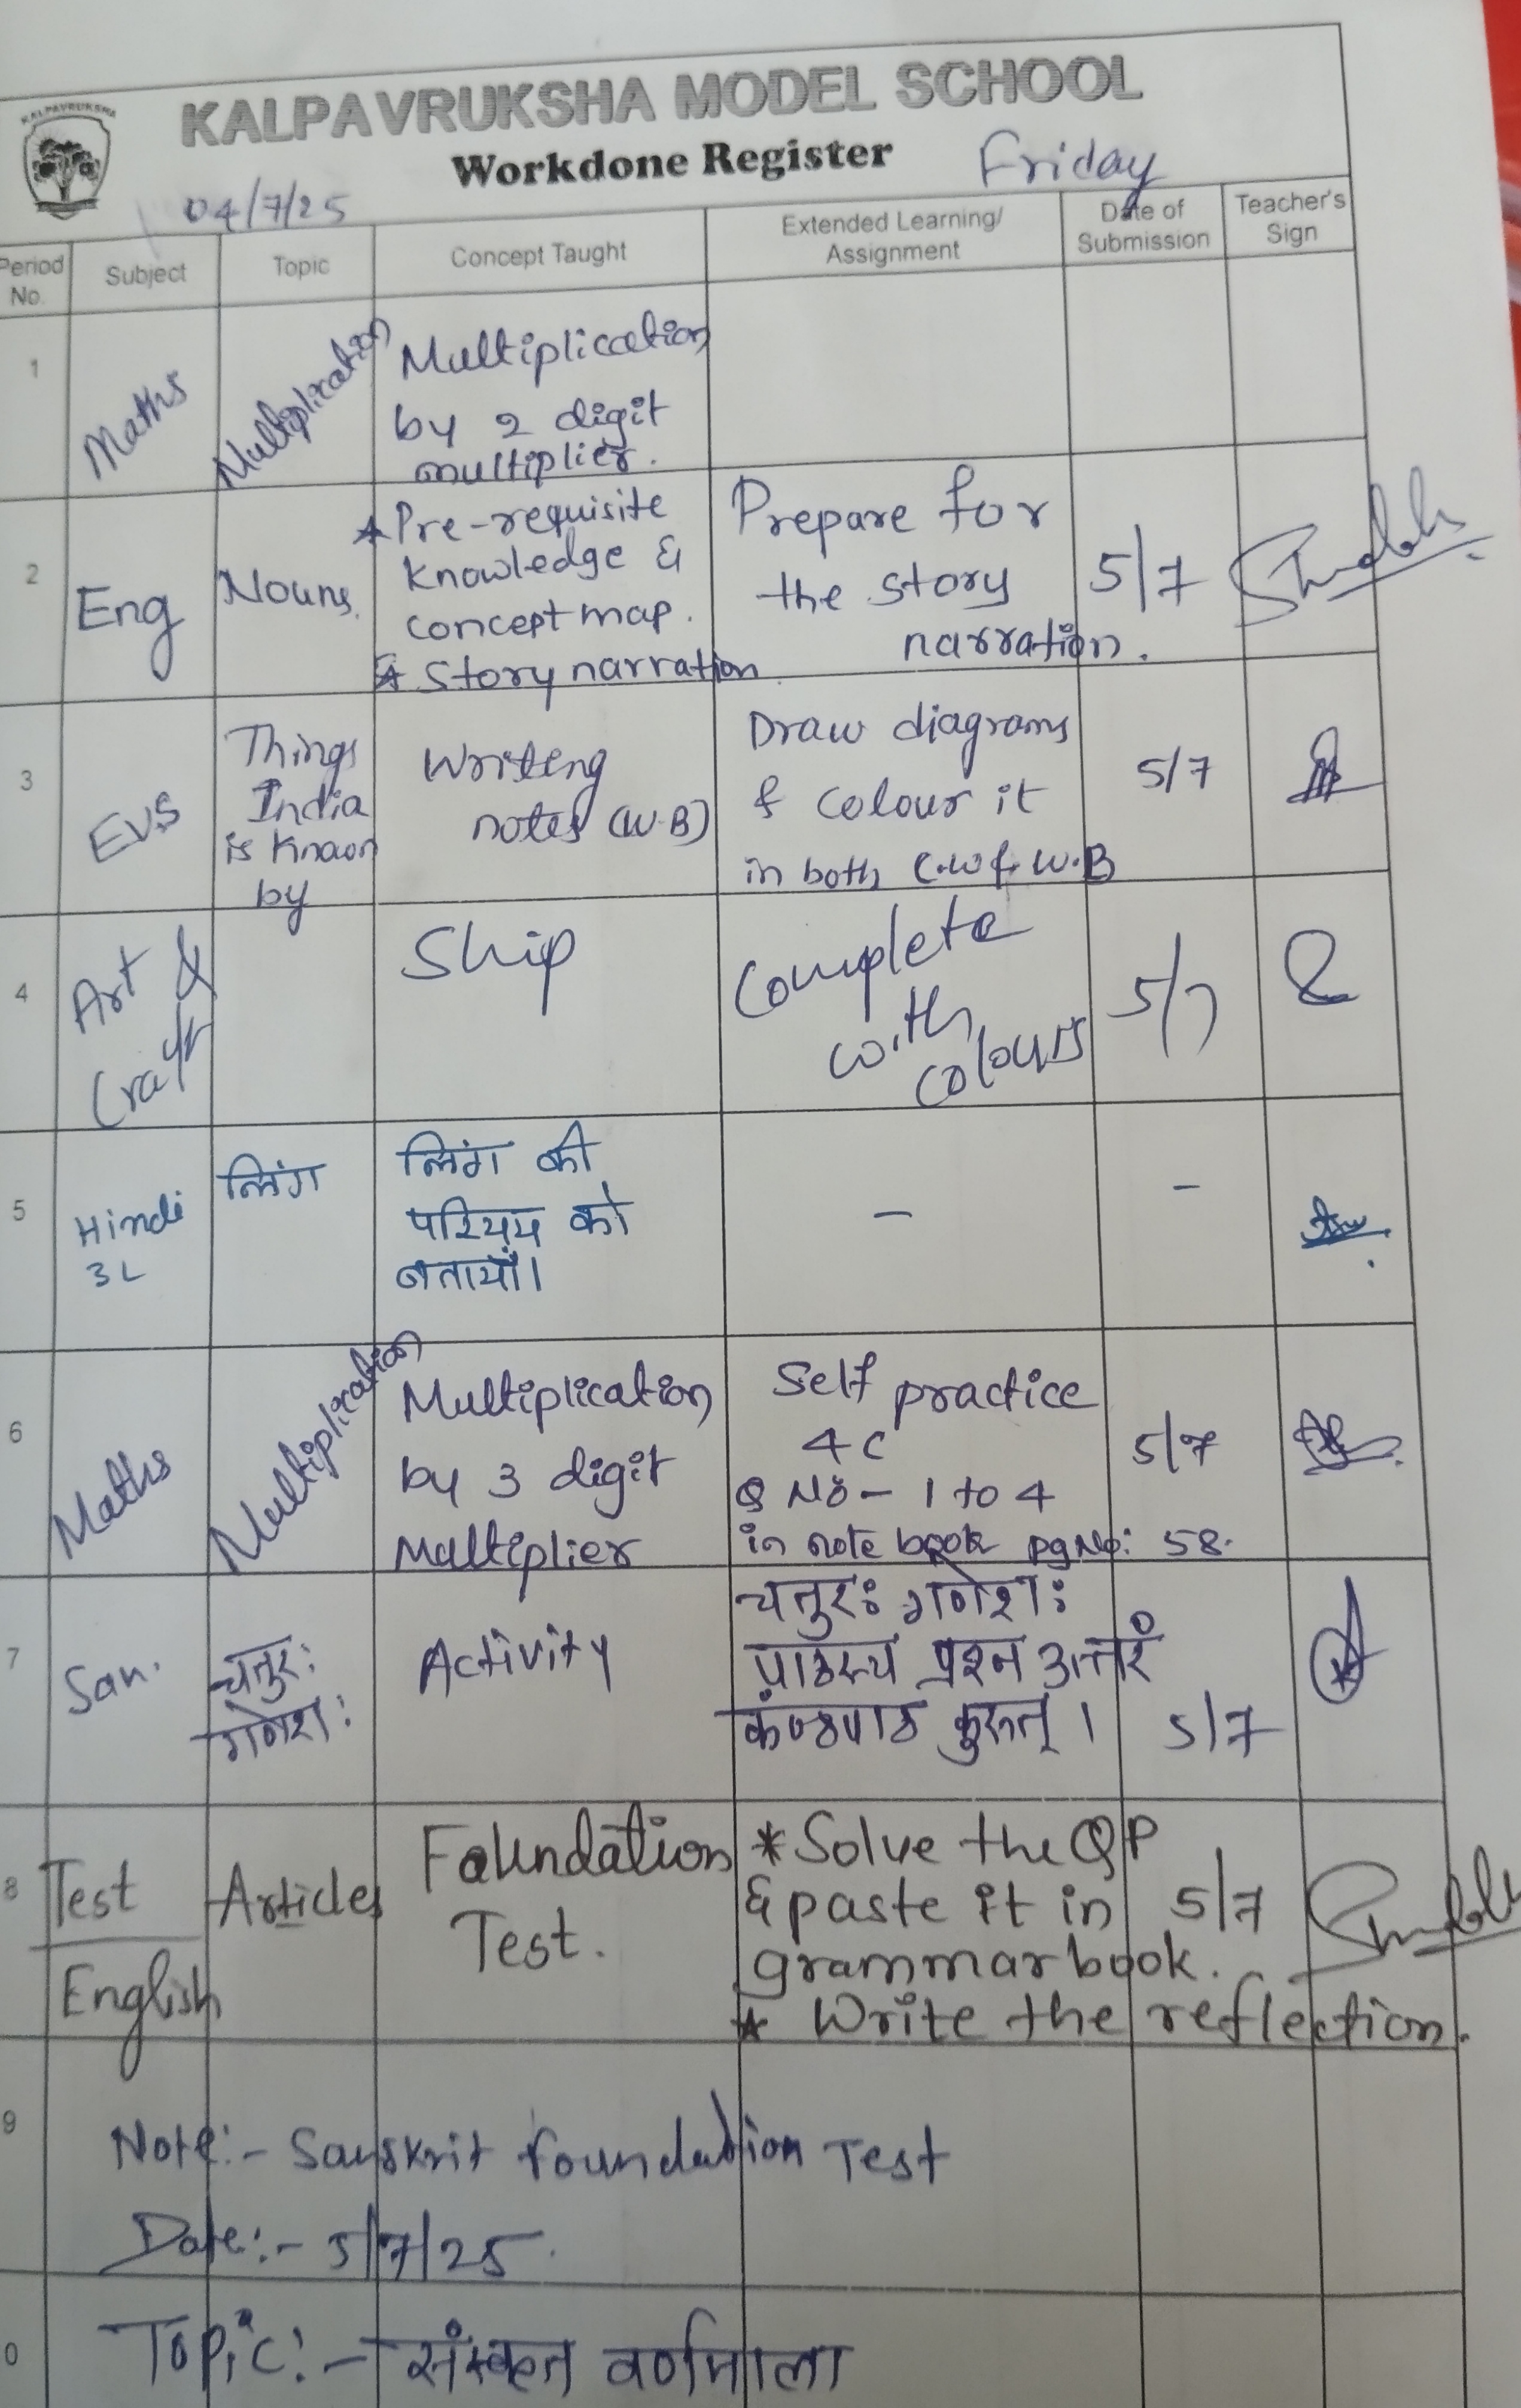 KALPAVRUKSHA
KALPAVRUKSHA MODEL SCHOOL
Workdone Register
Friday
04/7/25
Period No.
Subject
Topic
Concept Taught
Extended Learning/ Assignment
Date of Submission
Teacher's Sign
1
Maths
Multiplication
Multiplication
by 2 digit
multiplier.
2
Eng
Nouns.
* Pre-requisite
knowledge &
concept map.
* Story narration
Prepare for
the story
narration.
5/7
3
EVS
Things
India
is known
by
Writing
notes (W.B)
Draw diagrams
& colour it
in both C.W & W.B
5/7
4
Art &
Craft
Ship
Complete
with
colours
5/7
5
Hindi
3L
लिंग
लिंग की
परियय को
बतायाँ।
–
–
6
Maths
Multiplication
Multiplication
by 3 digit
Multiplier
Self practice
4C
Q No – 1 to 4
in note book pg No: 58.
5/7
7
San.
चतुरः
गणेशः
Activity
चतुरः गणेशः
पाठस्य प्रश्न उत्तरं
कंण्ठपाठ कुरुत् ।
5/7
8
Test
English
Articles
Foundation
Test.
* Solve the QP
& paste it in
grammar book.
* Write the reflection.
5/7
9
Note:- Sanskrit foundation Test
Date:- 5/7/25.
0
Topic:- संस्कृत वर्णमाला